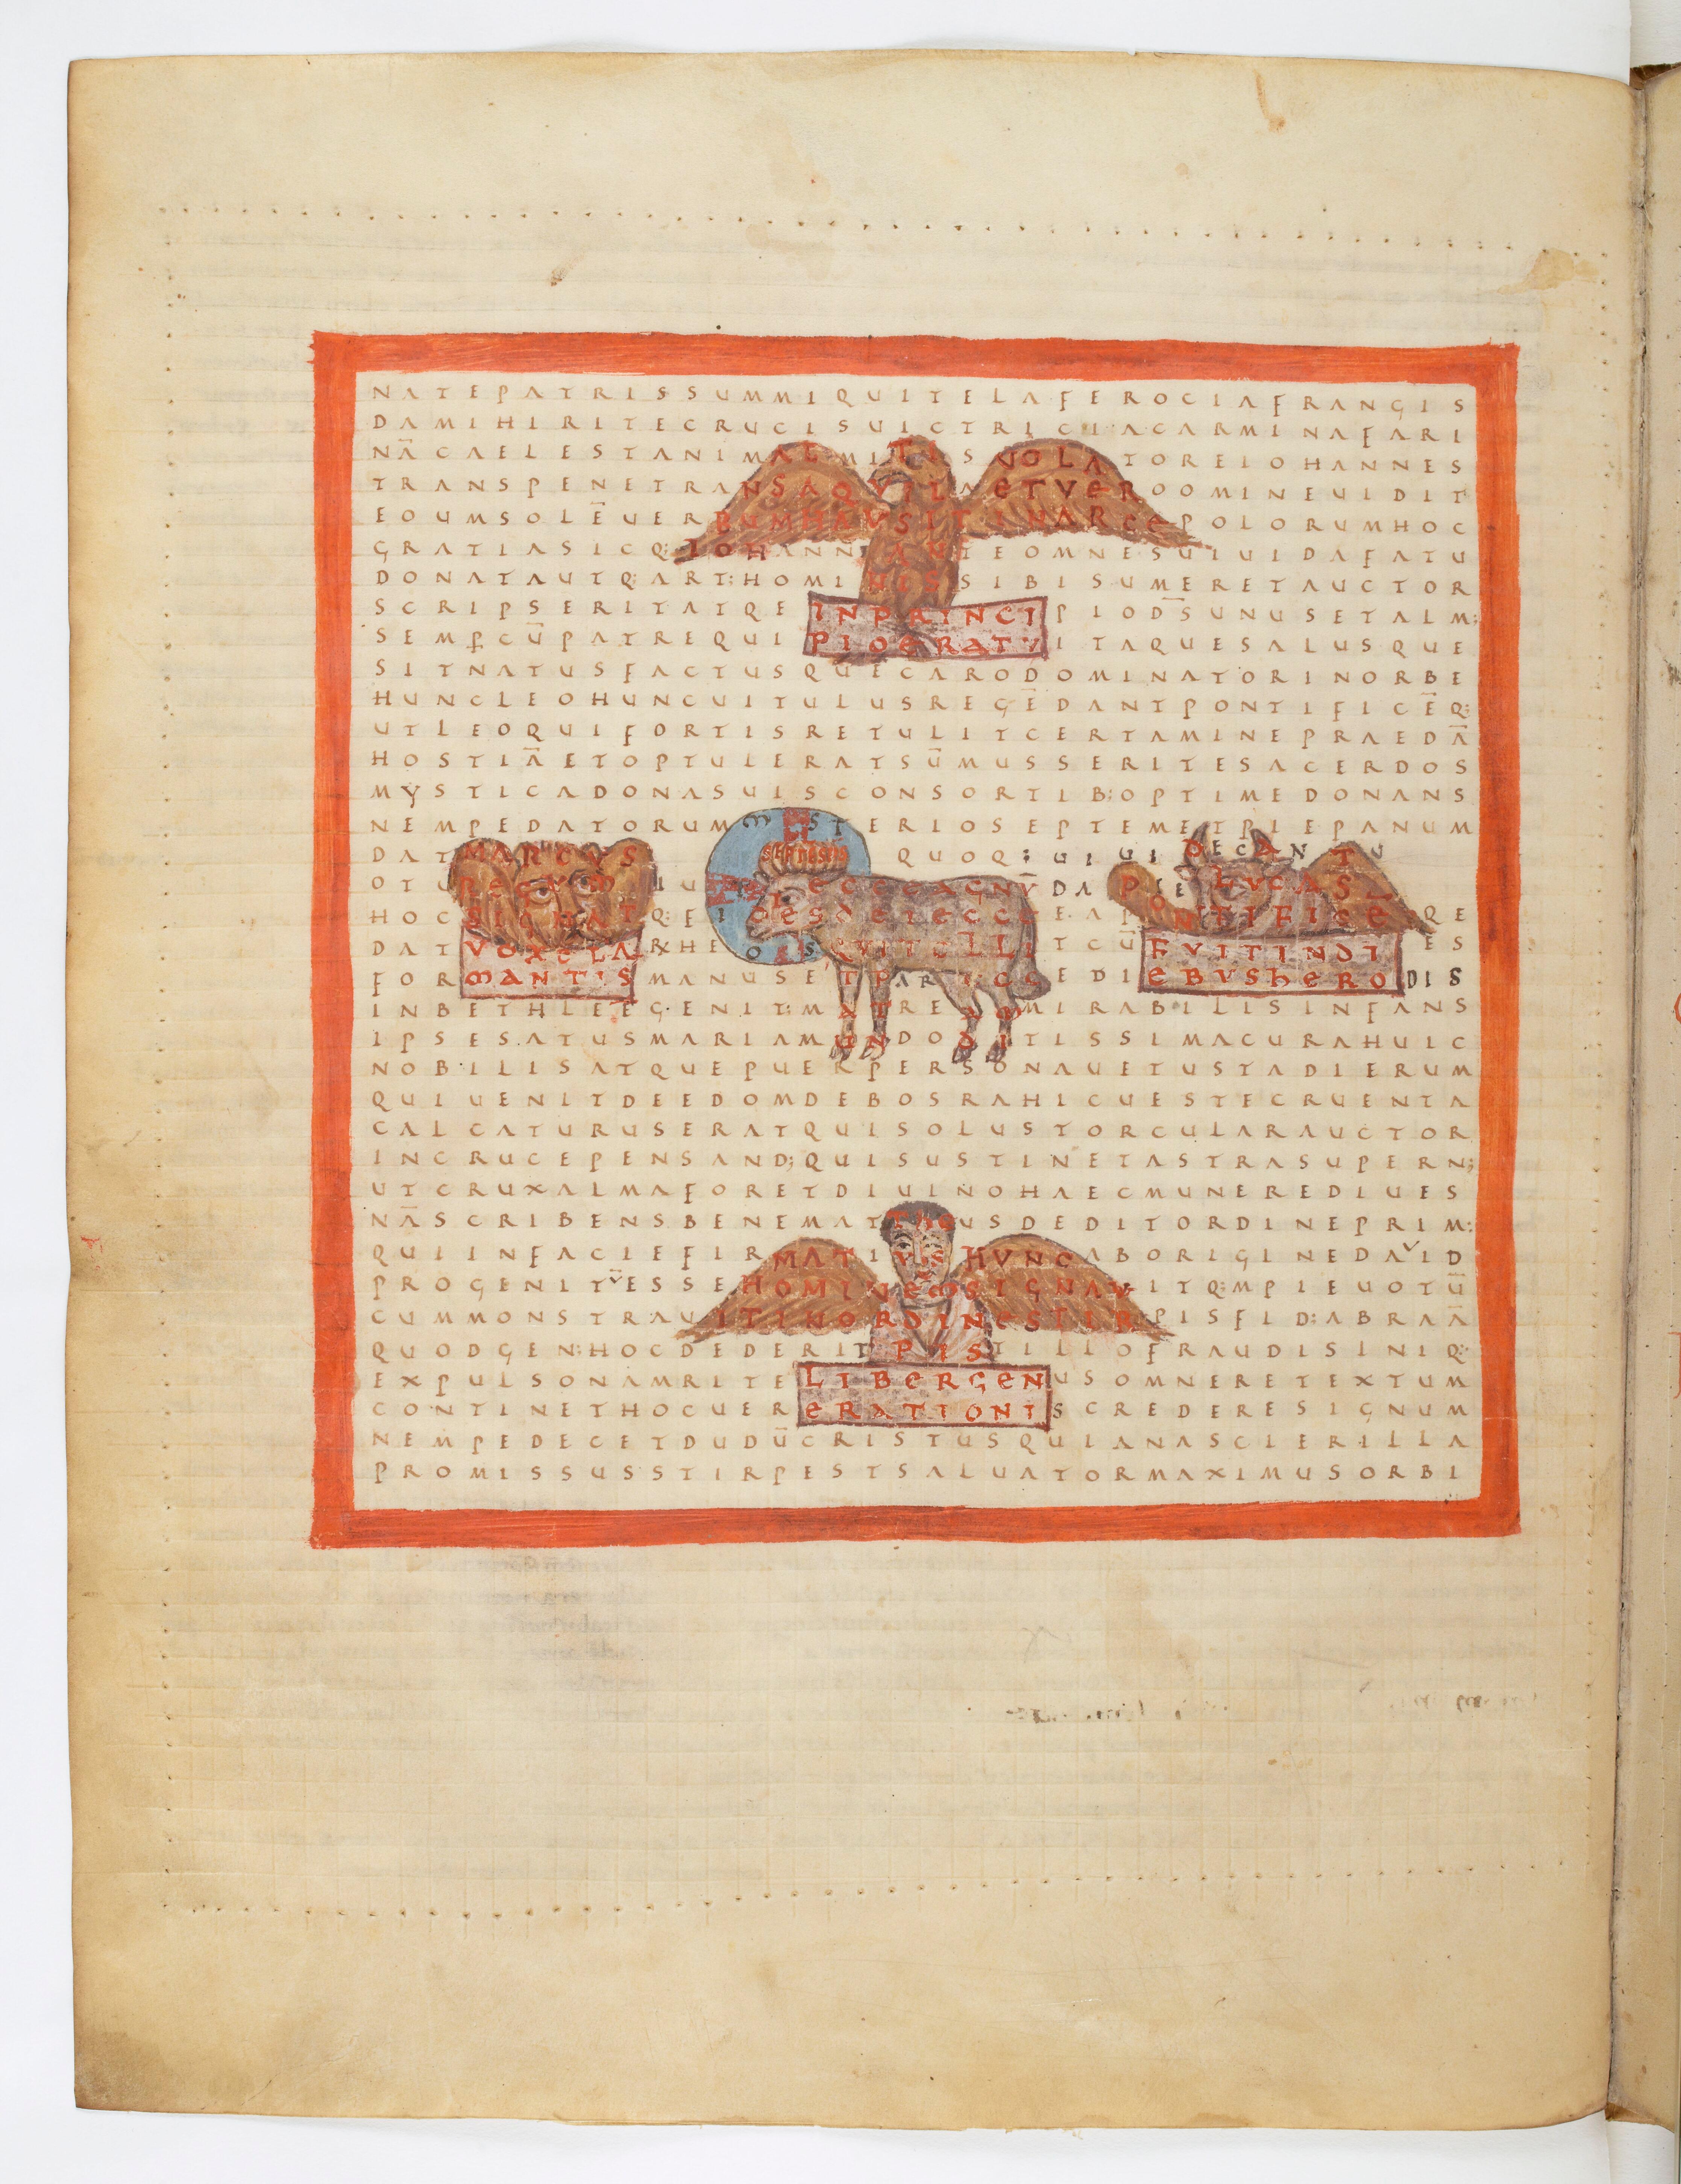 NATEPATRISSUMMIQUITELAFEROCIAFRANGIS
DAMIHIRITECRUCISUICTRICIACARMINAFARI
NĀCAELESTANIMALMITISVOLATOREIOHANNES
TRANSPENETRANSAQVILAETVEROOMINEUIDIT
EOUMSOLĒUERBUMHAVSITINARCEPOLORUMHOC
GRATIASICQ:IOHANNARTEOMNESUIUIDAFATU
DONATAUTQ:ART:HOMINISSIBISUMERETAUCTOR
SCRIPSERITATQEINPRINCIPIOD̄SUNUSETALM;
SEMPCŪPATREQUIPIOERATVITAQUESALUSQUE
SITNATUSFACTUSQUECARODOMINATORINORBE
HUNCLEOHUNCUITULUSREGĒDANTPONTIFICĒQ:
UTLEOQUIFORTISRETULITCERTAMINEPRAEDĀ
HOSTIĀETOPTULERATSŪMUSSERITESACERDOS
MYSTICADONASUISCONSORTIB:OPTIMEDONANS
NEMPEDATORUMMYSTERIOSEPTEMETPIEPANUM
DATMARCUS SEPTES QUOQ: UIUI DECANTU
OTUREGEM ECCEAGNŪDA LUCAS
HOCSIGNATQ:EI DESDEIECCE EAPONTIFICEQE
DATVOXCLARXHEORSQVITOLLITCŪFVITINDIES
FORMANTISMANUSETPARTOSEDIEBVSHERODIS
INBETHLEEGENIT:MATREMIRABILISINFANS
IPSESATUSMARIAMUNDODITISSIMACURAHUIC
NOBILISATQUEPUERPERSONAUETUSTADIERUM
QUIUENITDEEDOMDEBOSRAHICUESTECRUENTA
CALCATURUSERATQUISOLUSTORCULARAUCTOR
INCRUCEPENSAND;QUISUSTINETASTRASUPERN;
UTCRUXALMAFORETDIUINOHAECMUNEREDIUES
NĀSCRIBENSBENEMATTHEUSDEDITORDINEPRIM:
QUIINFACIEFIRMATIVSHVNCABORIGINEDAVID
PROGENITVESSEHOMINEOSIGNAVITQ:MPIEUOTŪ
CUMMONSTRAVITINORDINESTIRPISFID:ABRAĀ
QUODGEN:HOCDEDERITPISTILLOFRAUDISINIQ:
EXPULSONAMRITELIBERGENUSOMNERETEXTUM
CONTINETHOCUERERATIONISCREDERESIGNUM
NEMPEDECETDUDŪCRISTUSQUIANASCIERILLA
PROMISSUSSTIRPESTSALUATORMAXIMUSORBI